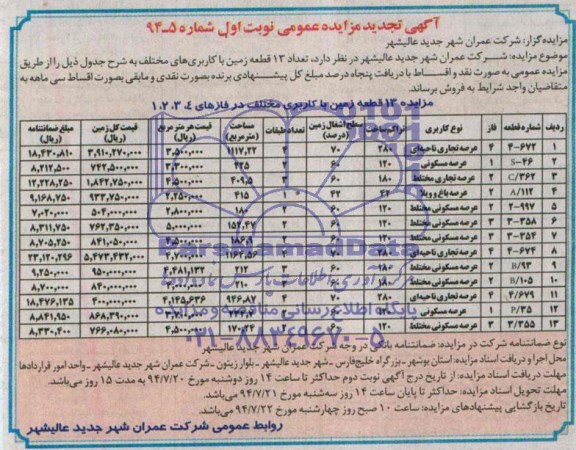 آگهی تجدید مزایده عمومی نوبت اول شماره ۵ـ۹۴
مزایده گزار: شرکت عمران شهر جدید عالیشهر
موضوع مزایده: شرکت عمران شهر جدید عالیشهر در نظر دارد، تعداد ۱۳ قطعه زمین با کاربری‌های مختلف به شرح جدول ذیل را از طریق
مزایده عمومی به صورت نقد و اقساط با دریافت پنجاه درصد مبلغ کل پیشنهادی برنده بصورت نقدی و مابقی بصورت اقساط سی ماهه به
متقاضیان واجد شرایط به فروش برساند.
مزایده ۱۳ قطعه زمین با کاربری مختلف در فازهای ۱،۲،۳،۴
ردیف شماره قطعه فاز نوع کاربری تراکم ساخت سطح اشغال زمین (درصد) تعداد طبقات مساحت (مترمربع) قیمت هر متر مربع (ریال) قیمت کل زمین (ریال) مبلغ ضمانتنامه (ریال)
۱ ۴-۶۷۲ ۴ عرصه تجاری ناحیه‌ای ۲۸۰ ۷۰ ۴ ۱۱۱۷,۲۲ ۳,۵۰۰,۰۰۰ ۳,۹۱۰,۲۷۰,۰۰۰ ۱۸,۴۳۰,۸۱۰
۲ S-۴۶ ۱ عرصه مسکونی ۱۲۰ ۶۰ ۲ ۲۲۵ ۳,۳۰۰,۰۰۰ ۷۴۲,۵۰۰,۰۰۰ ۸,۲۱۲,۵۰۰
۳ C/۳۶۲ ۲ عرصه تجاری مختلط ۱۸۰ ۶۰ ۴۰۹,۵ ۴,۵۰۰,۰۰۰ ۱,۸۴۲,۷۵۰,۰۰۰ ۱۲,۲۲۸,۲۵۰
۴ ۸/۱۱۲ ۲ عرصه باغ و ویلا ۴۲ ۴۲ ۴۱۵ ۲,۲۵۰,۰۰۰ ۹۳۳,۷۵۰,۰۰۰ ۹,۱۶۸,۷۵۰
۵ ۲-۹۹۷ ۲ عرصه مسکونی مختلط ۱۲۰ ۶۰ ۲ ۱۸۰ ۲,۸۰۰,۰۰۰ ۵۰۴,۰۰۰,۰۰۰ ۷,۰۲۰,۰۰۰
۶ ۳-۳۵۸ ۳ عرصه مسکونی مختلط ۱۲۰ ۶۰ ۲ ۱۵۲,۴۷ ۵,۰۰۰,۰۰۰ ۷۶۲,۳۵۰,۰۰۰ ۸,۳۱۱,۷۵۰
۷ ۳-۳۵۴ ۳ عرصه مسکونی مختلط ۱۲۰ ۶۰ ۱۸۶,۹ ۴,۵۰۰,۰۰۰ ۸۴۱,۰۵۰,۰۰۰ ۸,۷۰۵,۲۵۰
۸ ۴-۶۷۴ ۴ عرصه تجاری ناحیه‌ای ۲۸۰ ۷۰ ۱۱۶۴,۵۶ ۴,۷۰۰,۰۰۰ ۵,۴۷۳,۴۳۲,۰۰۰ ۲۳,۱۲۰,۲۹۶
۹ B/۹۳ ۲ عرصه مسکونی مختلط ۱۸۰ ۶۰ ۲۱۲ ۴,۴۸۱,۱۳۲ ۹۵۰,۰۰۰,۰۰۰ ۹,۲۵۰,۰۰۰
۱۰ B/۱۰۵ ۲ عرصه مسکونی مختلط ۱۸۰ ۶۰ ۲۱۰ ۸۴۰,۰۰۰,۰۰۰ ۸,۷۰۰,۰۰۰
۱۱ ۴/۶۷۹ ۴ عرصه تجاری ناحیه‌ای ۲۸۰ ۷۰ ۴ ۹۴۶,۸۷ ۴,۱۴۵,۶۳۶ ۱۸,۴۷۶,۱۳۵
۱۲ P/۳۵ ۱ عرصه مسکونی ۱۲۰ ۸۶۸,۳۹۰,۰۰۰ ۸,۸۴۱,۹۵۰
۱۳ ۳/۳۵۵ ۳ عرصه مسکونی مختلط ۱۲۰ ۶۰ ۱۷۰,۲۴ ۴,۵۰۰,۰۰۰ ۷۶۶,۰۸۰,۰۰۰ ۸,۳۳۰,۴۰۰
ParsNamadData
پایگاه اطلاع رسانی مناقصه و مزایده
۰۲۱-۸۸۳۴۹۶۷۰-۵
نوع ضمانتنامه شرکت در مزایده: ضمانتنامه بانکی در وجه شرکت عمران شهر جدید عالیشهر
محل اجرا و دریافت اسناد مزایده: استان بوشهر ـ بزرگراه خلیج‌فارس ـ شهر جدید عالیشهر ـ بلوار زیتون ـ شرکت عمران شهر جدید عالیشهر ـ واحد امور قراردادها
مهلت دریافت اسناد مزایده: از تاریخ درج آگهی نوبت دوم حداکثر تا ساعت ۱۴ روز دوشنبه مورخ ۹۴/۷/۲۰ به مدت ۱۵ روز می‌باشد.
مهلت تحویل اسناد مزایده: حداکثر تا پایان ساعت ۱۴ روز سه‌شنبه مورخ ۹۴/۷/۲۱ می‌باشد.
تاریخ بازگشایی پیشنهادهای مزایده: ساعت ۱۰ صبح روز چهارشنبه مورخ ۹۴/۷/۲۲ می‌باشد.
روابط عمومی شرکت عمران شهر جدید عالیشهر